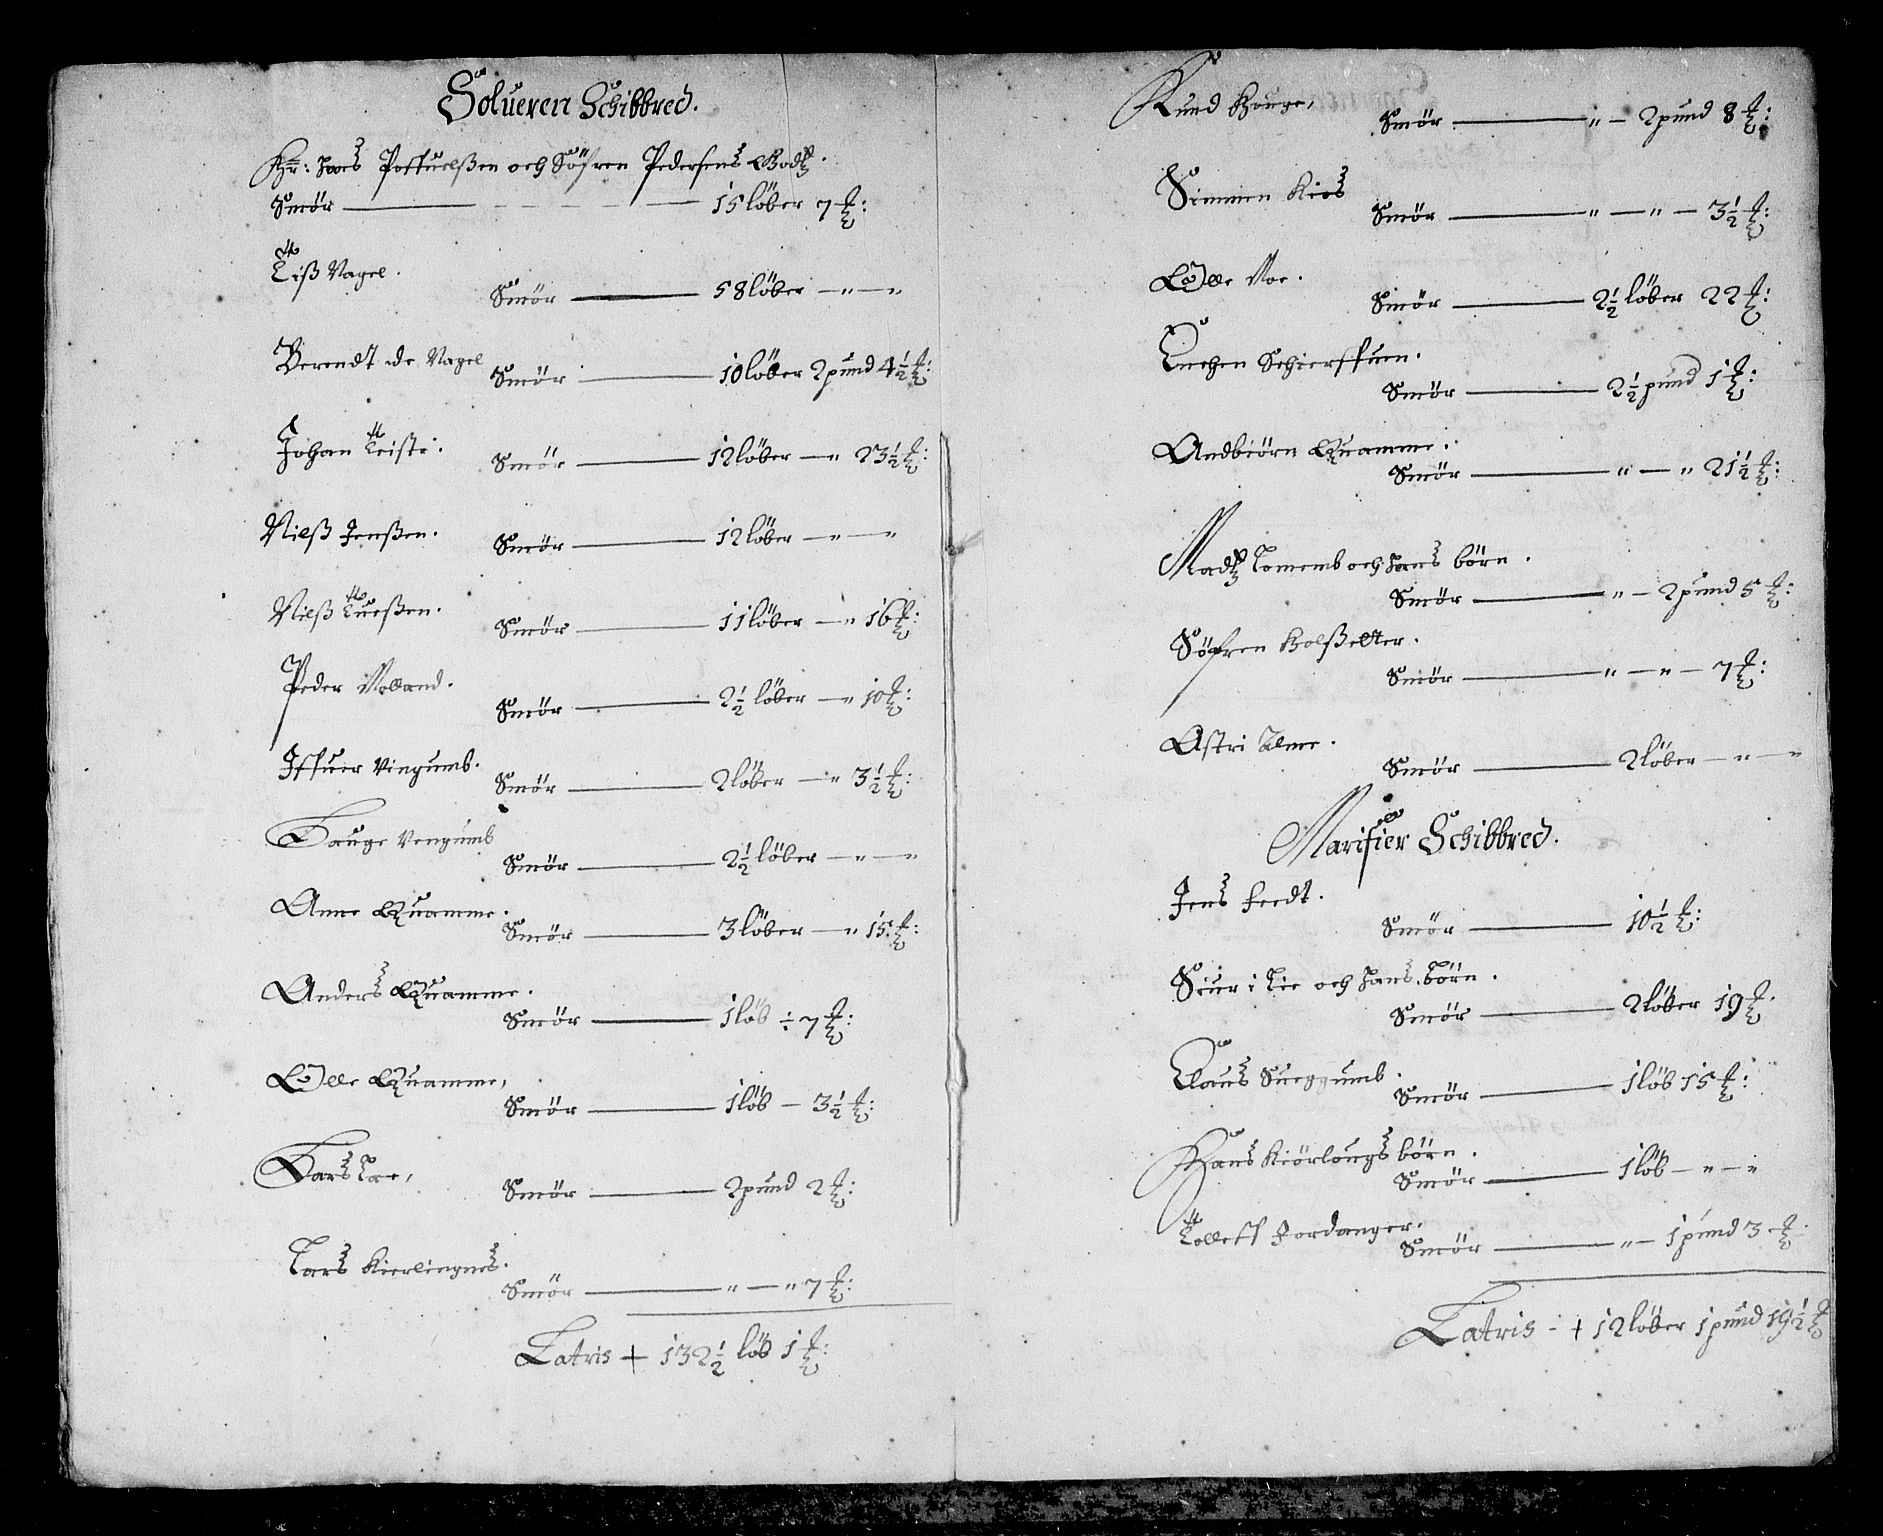 Solueren Schibbred.
Hr: Jens Poffuelßen och Söfren Pedersens Godtz.
Smör — 15 löber 7 ℔:
Tiß Nagel.
Smör — 58 löber — " — "
Berendt de Nagel Smör — 10 löber 2 pund 4½ ℔:
Johan Teiste. Smör — 12 löber — " 23½ ℔:
Nielß Jenßen. Smör — 12 löber — " — "
Nielß Tueßen. Smör — 11 löber — " 16 ℔:
Peder Volland. Smör — 2½ löber — " 10 ℔:
Iffuer Vingumb. Smör — 2 löber — " 3½ ℔:
Hauge Vengumb Smör — 2½ löber — " — "
Anne Quamme. Smör — 3 löber — " 15 ℔:
Anders Quamme. Smör — 1 löb ÷ 7 ℔:
Olle Quamme, Smör — 1 löb — 3½ ℔:
Lars Loe, Smör — 2 pund 2 ℔:
Lars Kierlingnes. Smör — " — " 7 ℔:
Latris + 132½ löb 1 ℔:
Knud Houge, Smör — " — 2 pund 8 ℔:
Simmen Kios Smör — " — " — 3½ ℔:
Olle Noe. Smör — 2½ löber 22 ℔:
Suchen Schierffuen.
Smör — 2½ pund 1 ℔:
Andbiörn Quamme.
Smör — " — " 21½ ℔:
Madtz Lomemb och hans börn.
Smör — " — 2 pund 5 ℔:
Söfren Holßetter.
Smör — " — " — 7 ℔:
Astri Alme.
Smör — 2 löber — " — "
Marifier Schibbred.
Jens Feedt.
Smör — 10½ ℔:
Siur i Lie och hans börn.
Smör — 2 löber 19 ℔.
Claus Sueggumb.
Smör — 1 löb 15 ℔:
Hans Kiörlougs börn.
Smör — 1 löb — " — "
Tolleff Jordanger.
Smör — " — 1 pund 3 ℔.
Latris - + 12 löber 1 pund 19½ ℔